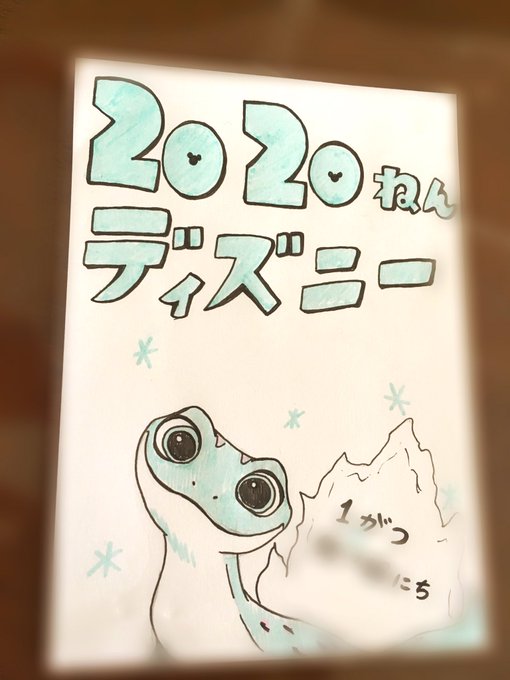 2020ねん
ディズニー
1がつ
にち